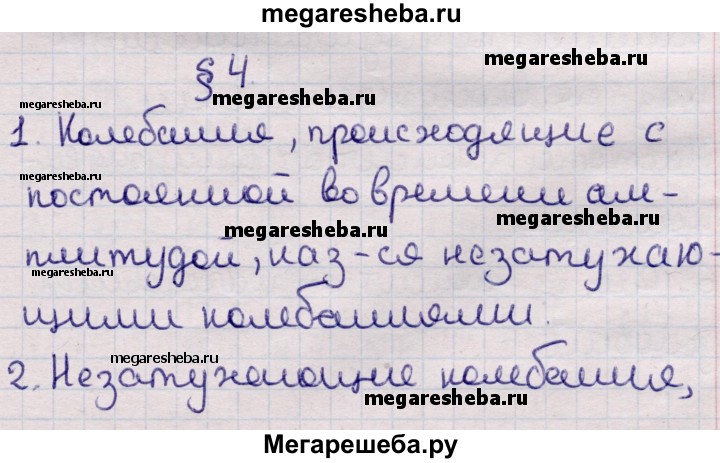 megaresheba.ru
§ 4.
megaresheba.ru
megaresheba.ru
megaresheba.ru
1. Колебания, происходящие с
megaresheba.ru
постоянной во времени ам-
megaresheba.ru
megaresheba.ru
плитудой, наз-ся незатухаю-
megaresheba.ru
щими колебаниями.
megaresheba.ru
2. Незатухающие колебания,
megaresheba.ru
Мегарешеба.ру